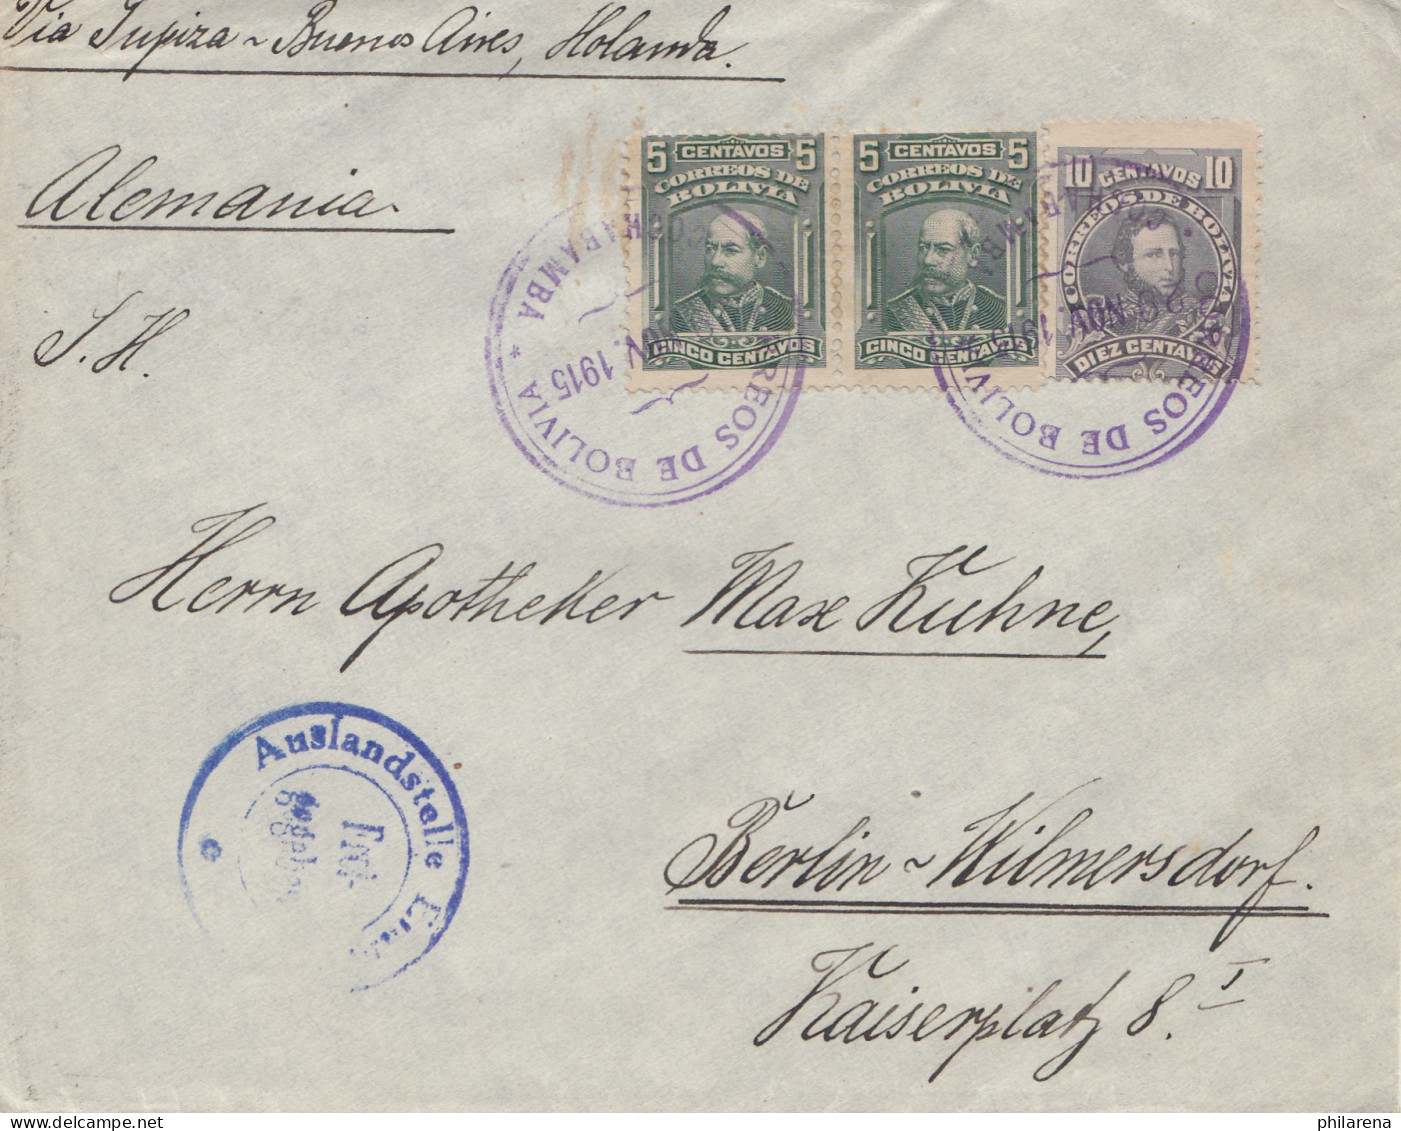 Via Tupiza ~ Buenos Aires, Holanda.
Alemania
S. H.
5 CENTAVOS 5
CORREOS DE
BOLIVIA
CINCO CENTAVOS
5 CENTAVOS 5
CORREOS DE
BOLIVIA
CINCO CENTAVOS
10 CENTAVOS 10
CORREOS DE BOLIVIA
DIEZ CENTAVOS
CORREOS DE BOLIVIA * COCHABAMBA
NOV. 1915
CORREOS DE BOLIVIA
NOV. 1915
Herrn Apotheker Max Kuhne,
Auslandstelle
Frei-
Berlin ~ Wilmersdorf.
Kaiserplatz 8. I
philarena.com